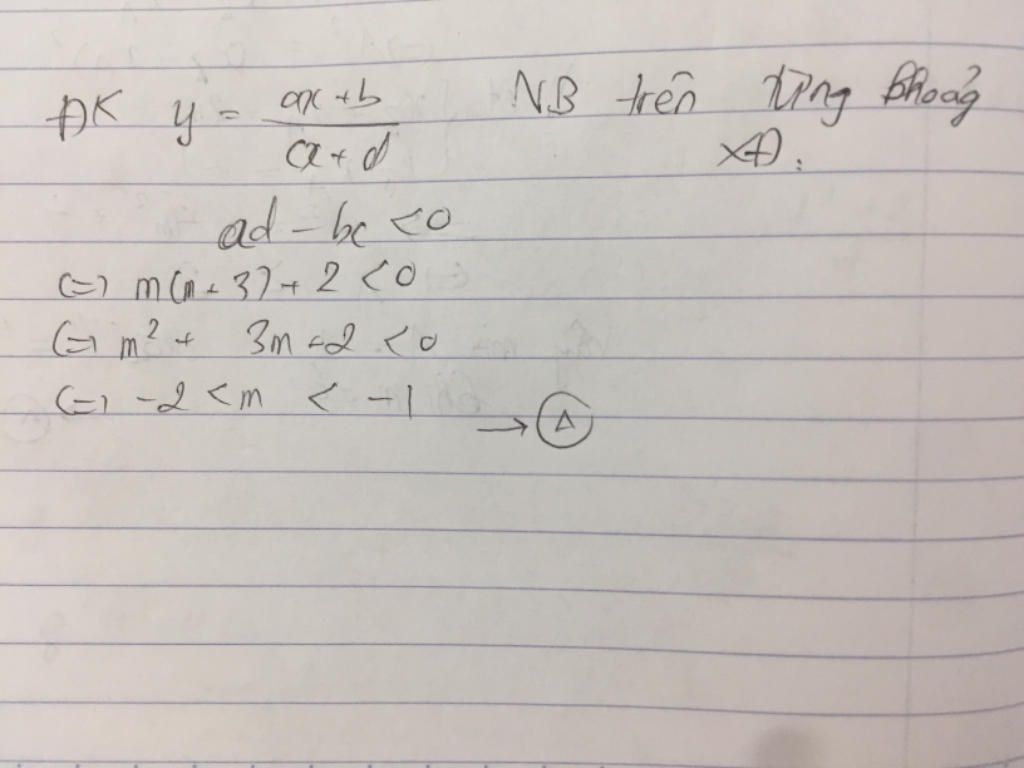 ĐK y = \frac{ax+b}{cx+d} NB trên từng khoảg
XĐ:
ad - bc < 0
(=) m(m+3)+2 < 0
(=) m² + 3m +2 < 0
(=) -2 < m < -1 → A